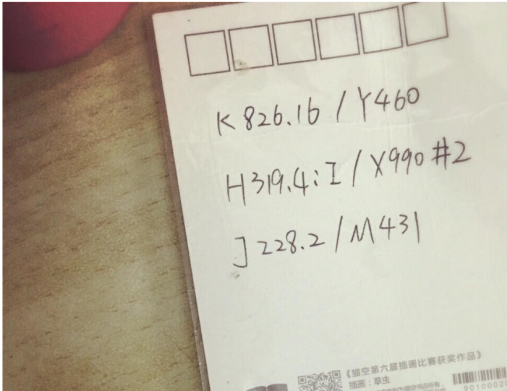 K826.16/Y460
H319.4:I/X990#2
J228.2/M431
《猫空第六届插画比赛获奖作品》
插画：草虫